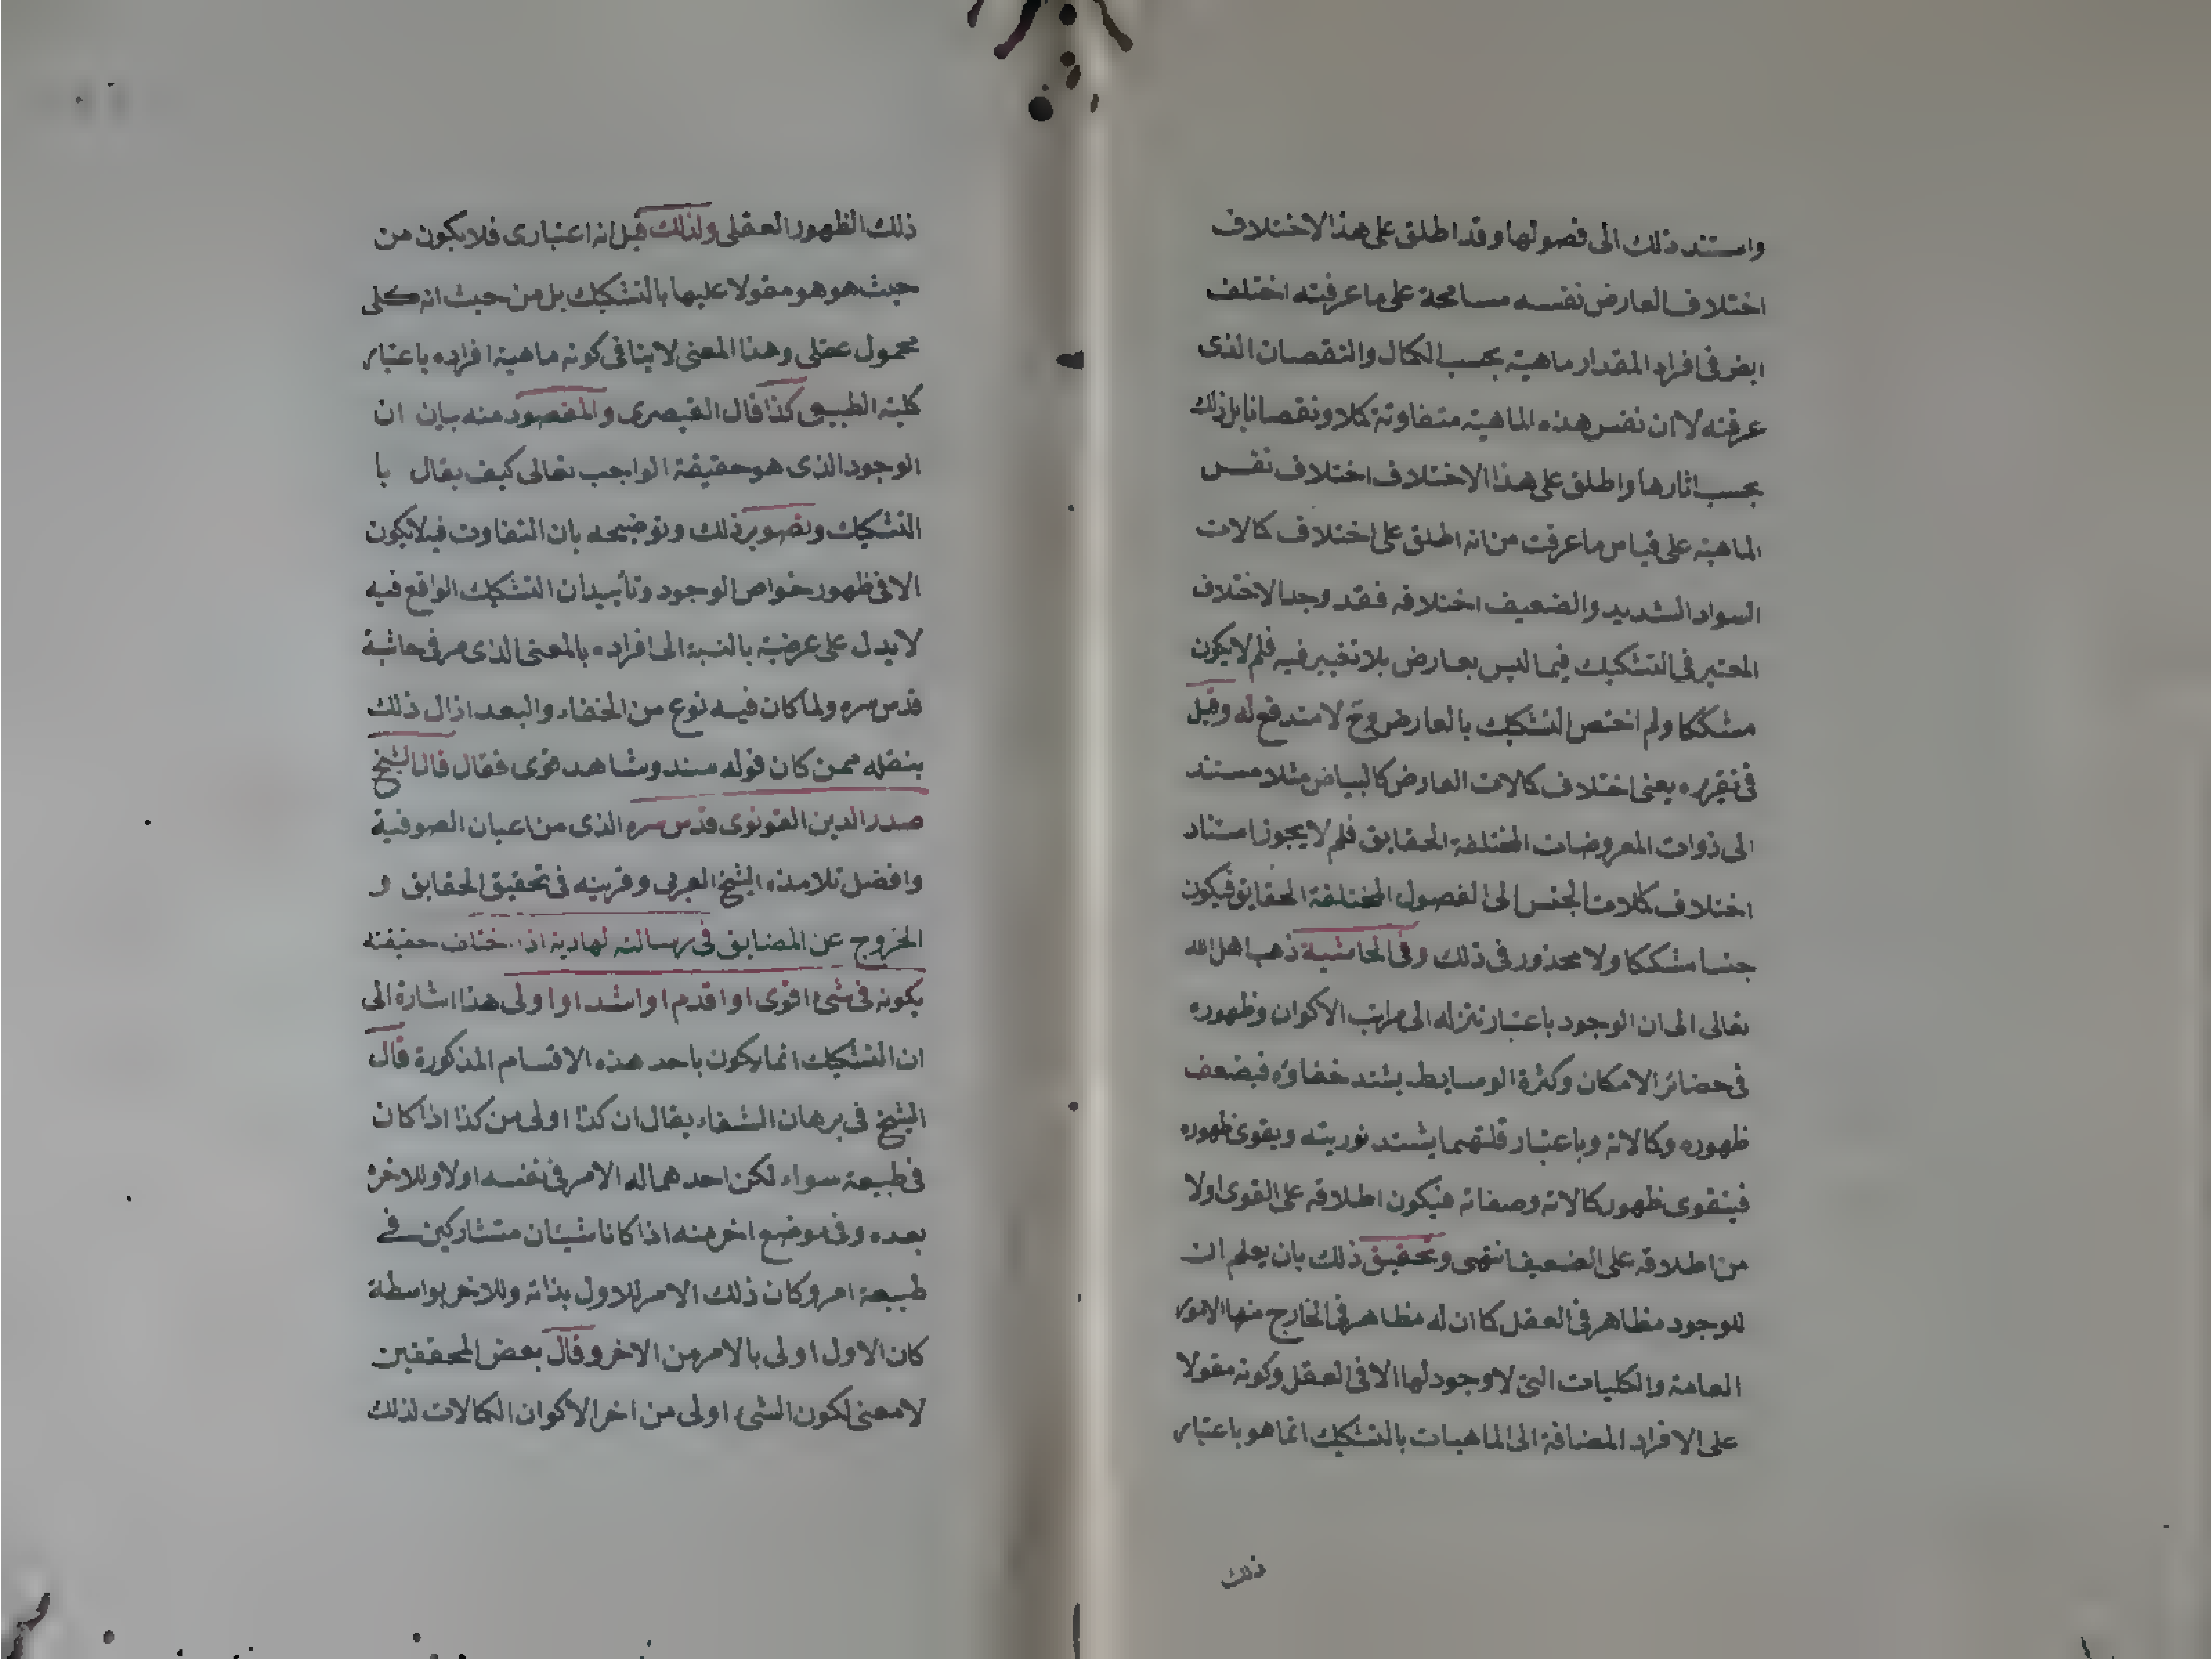 واستند ذلك الى فصولها وقد اطلق على هذا الاختلاف
اختلاف العارض نفسه مسامحة على ما عرفته اختلف
ايض فى افراد المقدار ماهية بحسب الكمال والنقصان الذى
عرفته لا ان نفس هذه الماهية متفاوتة كمالا ونقصانا بل ذلك
بحسب اثارها واطلق على هذا الاختلاف اختلاف نفس
الماهية على قياس ما عرفت من انه اطلق على اختلاف كمالات
السواد الشديد والضعيف اختلافه فقد وجد الاختلاف
المعتبر فى التشكيك فيما ليس بعارض بلا تغيير فيه فلم لا يكون
مشككا ولم اختص التشكيك بالعارض وح لا مندفع له وقيل
فى تقريره يعنى اختلاف كمالات العارض كالبياض مثلا مستند
الى ذوات المعروضات المختلفة الحقايق فلم لا يجوز استناد
اختلاف كمالات الجنس الى الفصول المختلفة الحقايق فيكون
جنسا مشككا ولا محذور فى ذلك وفى الحاشية ذهب اهل الله
تعالى الى ان الوجود باعتبار تنزله الى مراتب الاكوان وظهوره
فى حضائر الامكان وكثرة الوسايط يشتد خفاؤه فيضعف
ظهوره وكمالاته وباعتبار قلتهما يشتد نوريته ويقوى ظهوره
فيتقوى ظهور كمالاته وصفاته فيكون اطلاقه على القوى اولا
من اطلاقه على الضعيف انتهى وتحقيق ذلك بان يعلم ان
للوجود مظاهر فى العقل كما ان له مظاهر فى الخارج منها الامور
العامة والكليات التى لا وجود لها الا فى العقل وكونه مقولا
على الافراد المضافة الى الماهيات بالتشكيك انما هو باعتبار
ذلك
ذلك الظهور العقلى ولذلك قيل انه اعتبارى فلا يكون من
حيث هو هو مقولا عليها بالتشكيك بل من حيث انه كلى
محمول عقلى وهذا المعنى لا ينافى كونه ماهية افراده باعتبار
كليته الطبيعى كذا قال القيصرى والمقصود منه بيان ان
الوجود الذى هو حقيقة الواجب تعالى كيف يقال با
التشكيك وتصوير ذلك وتوضيحه بان التفاوت فيه لا يكون
الا فى ظهور خواص الوجود وتأييد ان التشكيك الواقع فيه
لا يدل على عرضية بالنسبة الى افراده بالمعنى الذى مر فى حاشية
قدس سره ولما كان فيه نوع من الخفاء والبعد ازال ذلك
بنقله ممن كان قوله سند وشاهد قوى فقال قال الشيخ
صدر الدين القونوى قدس سره الذى من اعيان الصوفية
وافضل تلامذه الشيخ العربى وقرينه فى تحقيق الحقايق و
الخروج عن المضايق فى رسالته لهادية اذا اختلف حقيقته
بكونه فى شئ اقوى او اقدم او اشد او اولى هذا اشارة الى
ان التشكيك انما يكون باحد هذه الاقسام المذكورة قال
الشيخ فى برهان الشفاء يقال ان كذا اولى من كذا اذا كان
فى طبيعة سواء لكن احدهما له الامر فى نفسه اولا وللاخر
بعده وفى موضع اخر منه اذا كانا شيئان متشاركين فى
طبيعة امر وكان ذلك الامر للاول بذاته وللاخر بواسطة
كان الاول اولى بالامر من الاخر وقال بعض المحققين
لا معنى لكون الشئ اولى من اخر الا كون الكمالات لذلك